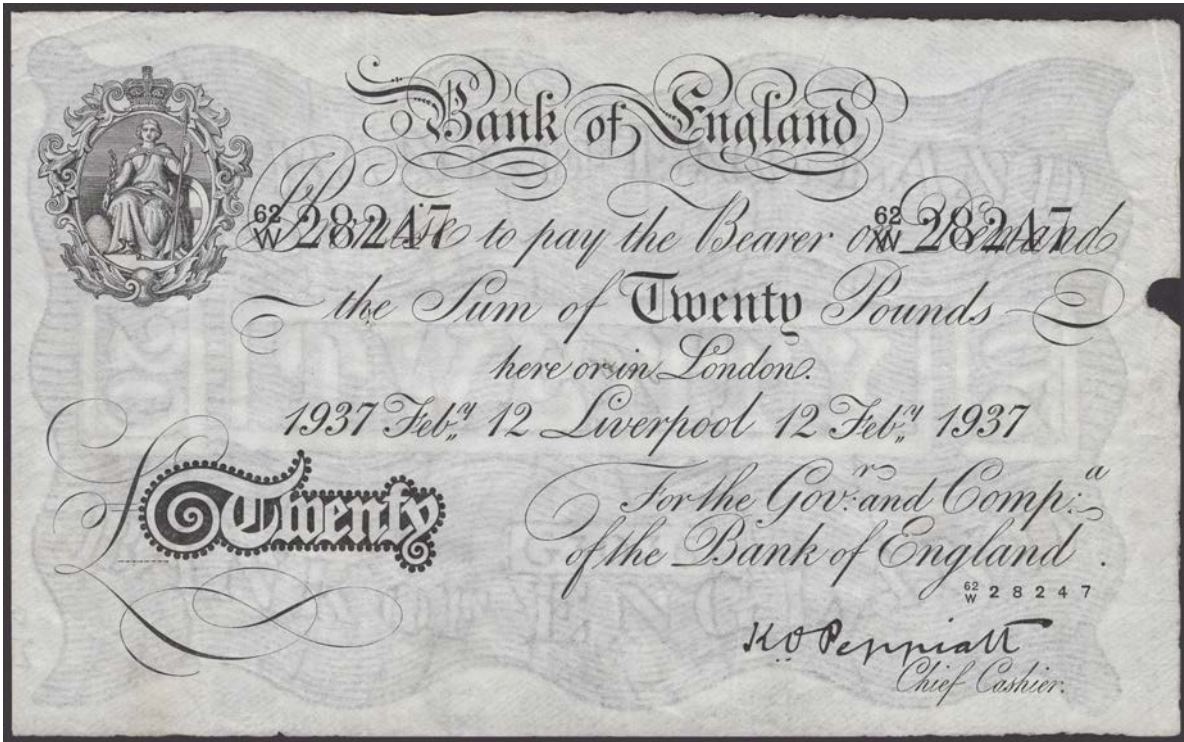 Bank of England
I Promise to pay the Bearer on Demand
62/W 28247 62/W 28247
the Sum of Twenty Pounds
here or in London.
1937 Feb.y 12 Liverpool 12 Feb.y 1937
£Twenty
For the Gov.r and Comp.a
of the Bank of England.
62/W 28247
K O Peppiatt
Chief Cashier.